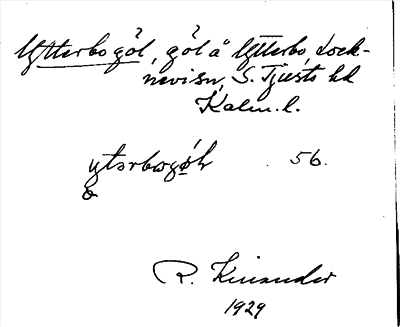 Ytterbo göl, göl å Ytterbo, Sock-
nevisn, S. Tjusts hd
Kalm. l.
ytərbogöl 56.
R. Kinander
1929